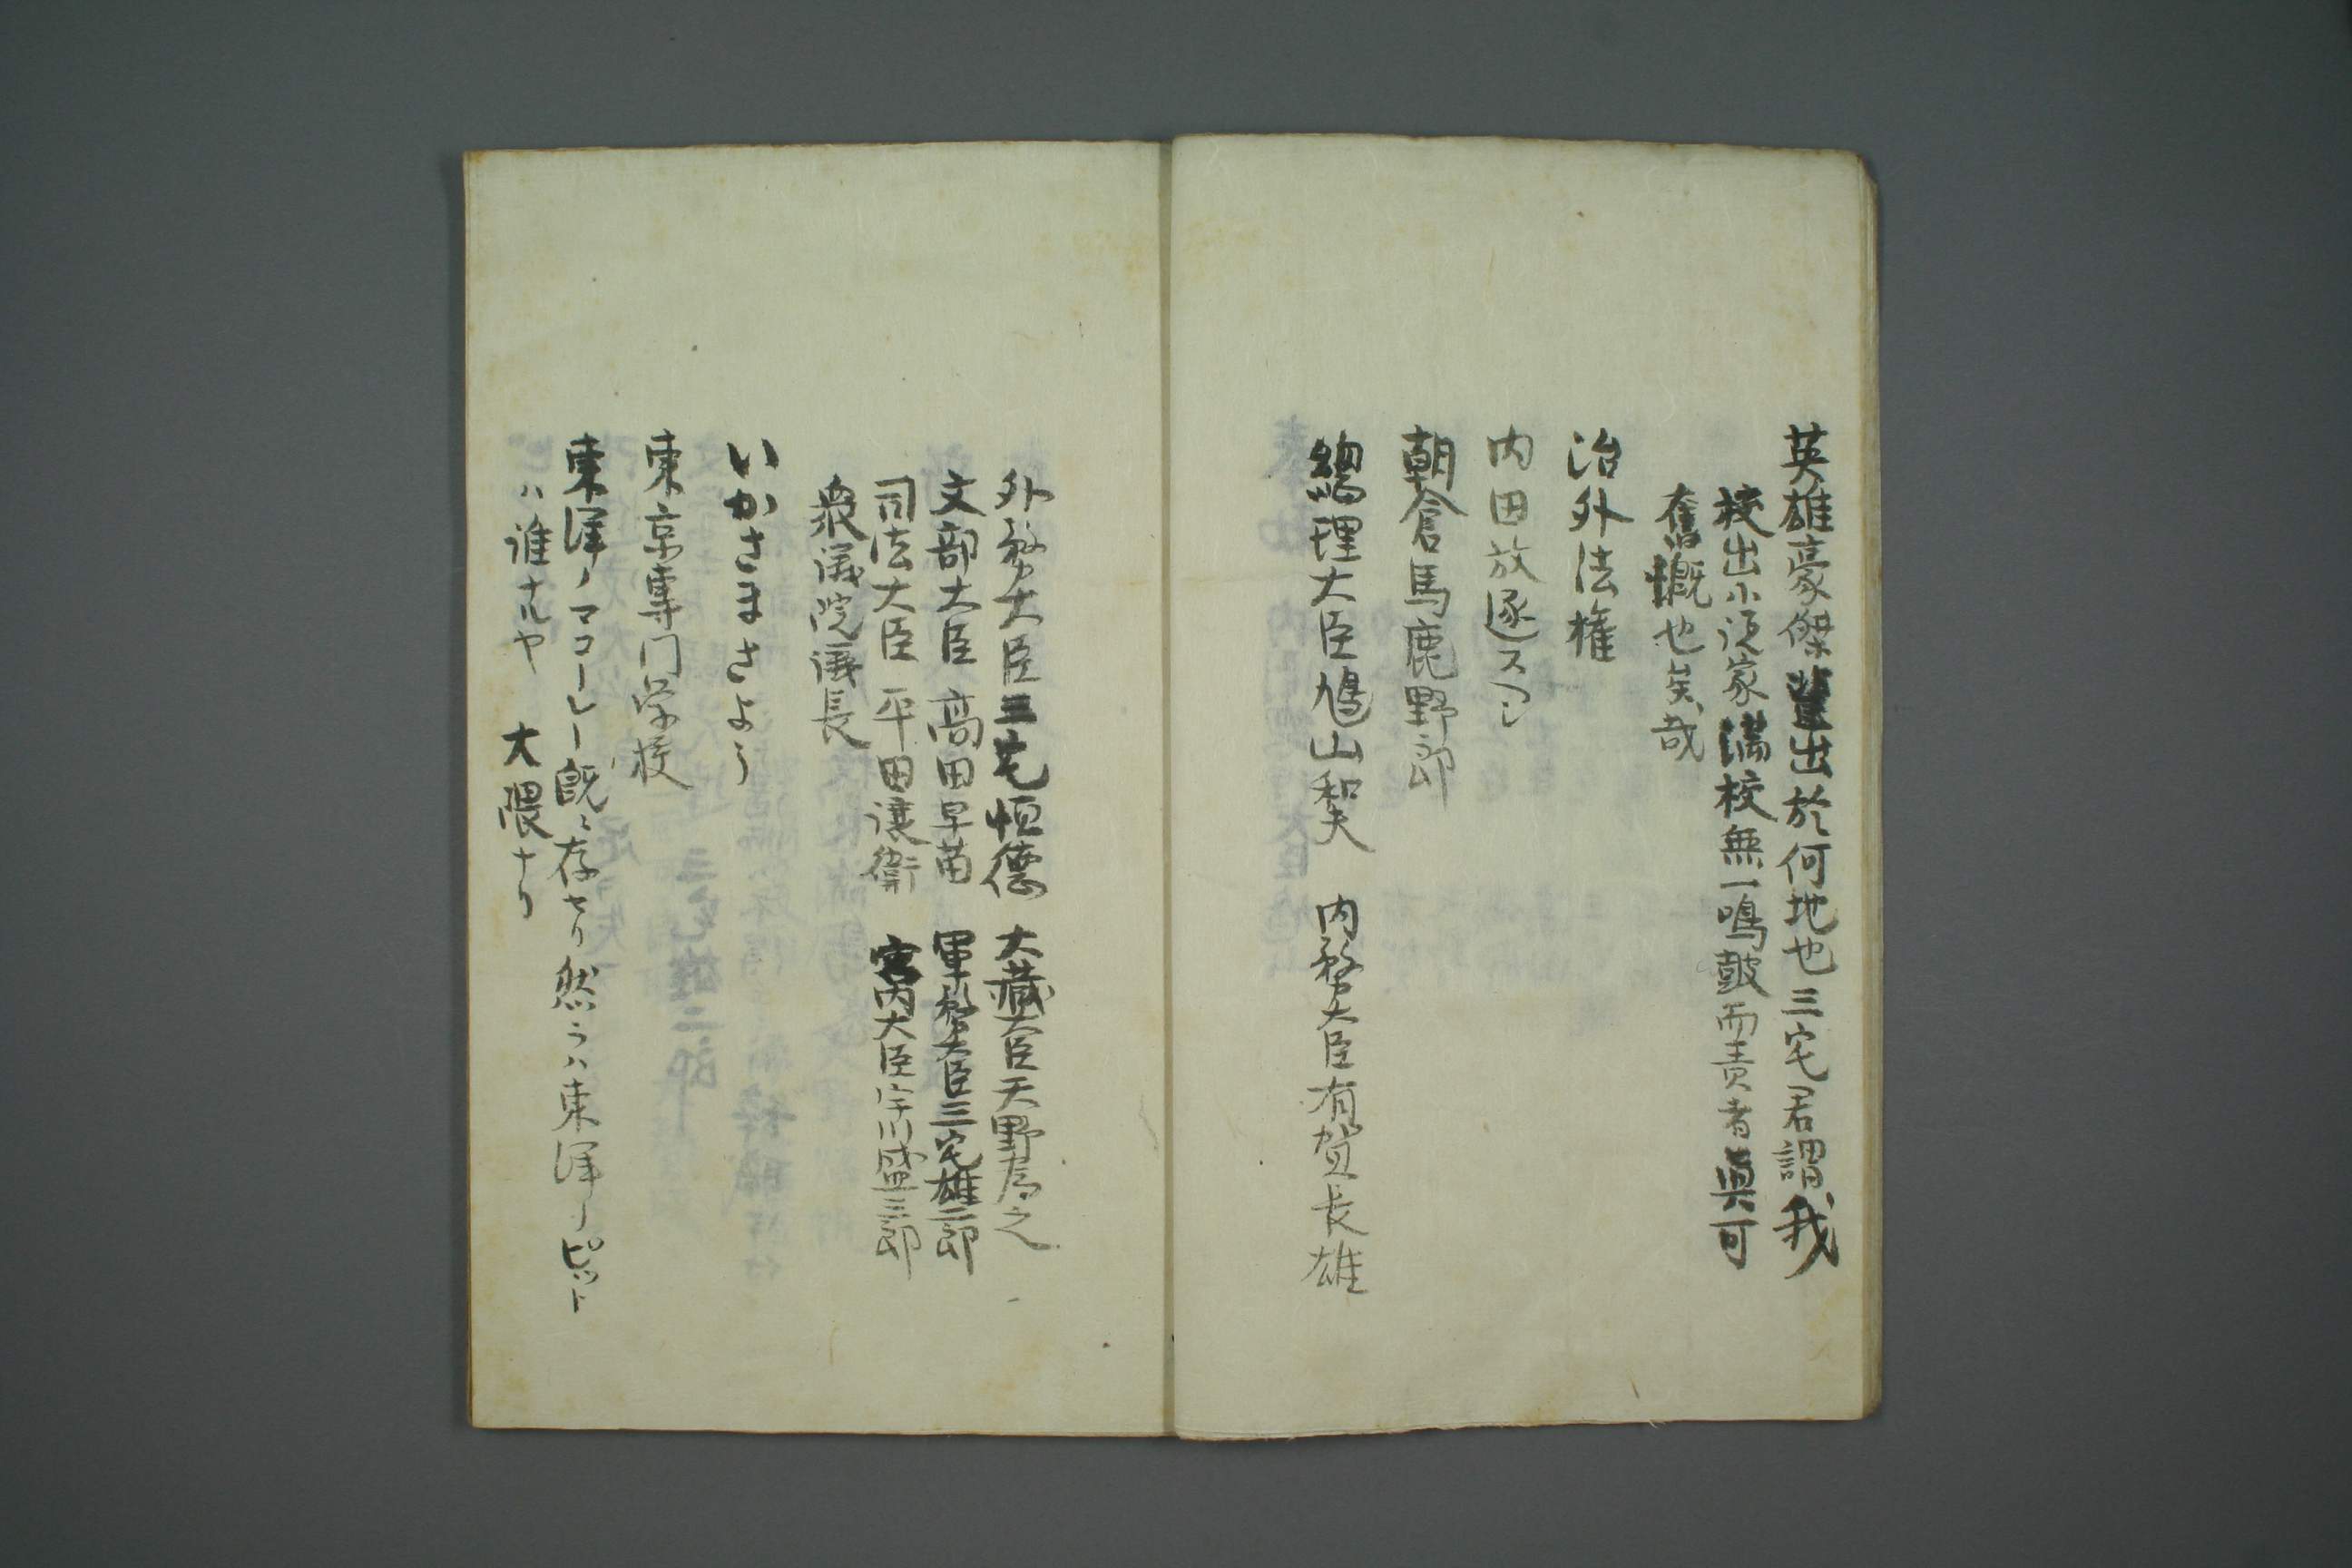 英雄豪傑輩出於何地也三宅君謂我
校出小説家満校無一鳴鼓而責者真可
奮慨也矣哉
治外法権
内田放逐スヘシ
朝倉馬鹿野郎
総理大臣鳩山和夫　内務大臣有賀長雄
外務大臣三宅恒徳　大蔵大臣天野為之
文部大臣　高田早苗　軍務大臣三宅雄二郎
司法大臣　平田譲衛　宮内大臣宇川盛三郎
衆議院議長
いかさまさよう
東京専門学校
東洋ノマコーレー既ニ存セリ然ラハ東洋ノピット
ハ誰ナルヤ　大隈ナリ